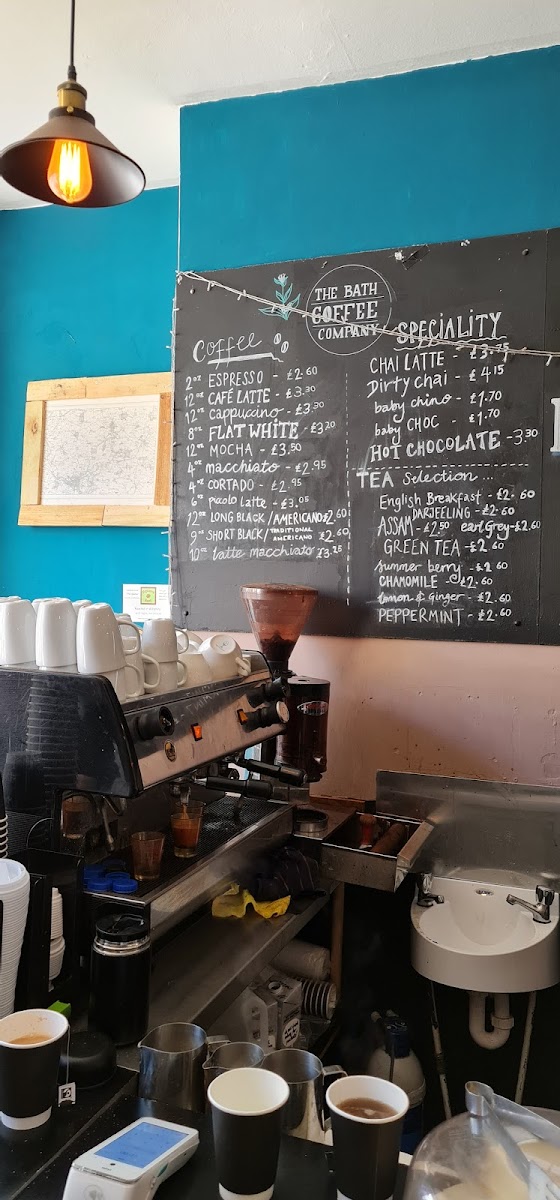 THE BATH
COFFEE
COMPANY
Coffee
2oz ESPRESSO - £2.60
12oz CAFÉ LATTE - £3.30
12oz cappuccino - £3.30
8oz FLAT WHITE - £3.20
12oz MOCHA - £3.50
4oz macchiato - £2.95
4oz CORTADO - £2.95
6oz picolo latte - £3.05
12oz LONG BLACK/AMERICANO £2.60
9oz SHORT BLACK/TRADITIONAL AMERICANO £2.60
10oz latte macchiato £3.25
SPECIALITY
CHAI LATTE - £3.75
Dirty chai - £4.15
baby chino - £1.70
baby CHOC - £1.70
HOT CHOCOLATE - 3.30
TEA Selection...
English Breakfast - £2.60
DARJEELING - £2.60
ASSAM - £2.50 earl Grey - £2.60
GREEN TEA - £2.60
summer berry - £2.60
CHAMOMILE - £2.60
lemon & Ginger - £2.60
PEPPERMINT - £2.60